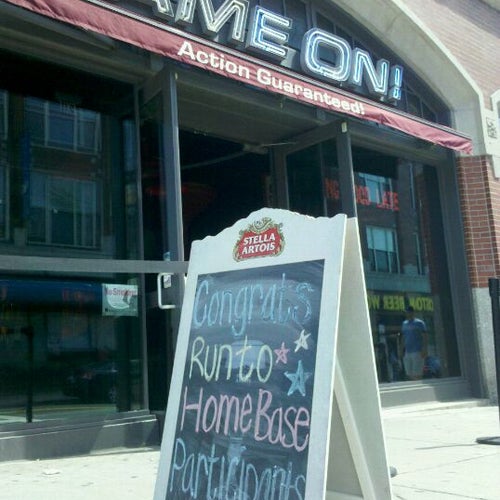 AME ON!
Action Guaranteed!
STELLA
ARTOIS
Congrats
Run to
Home Base
Participants